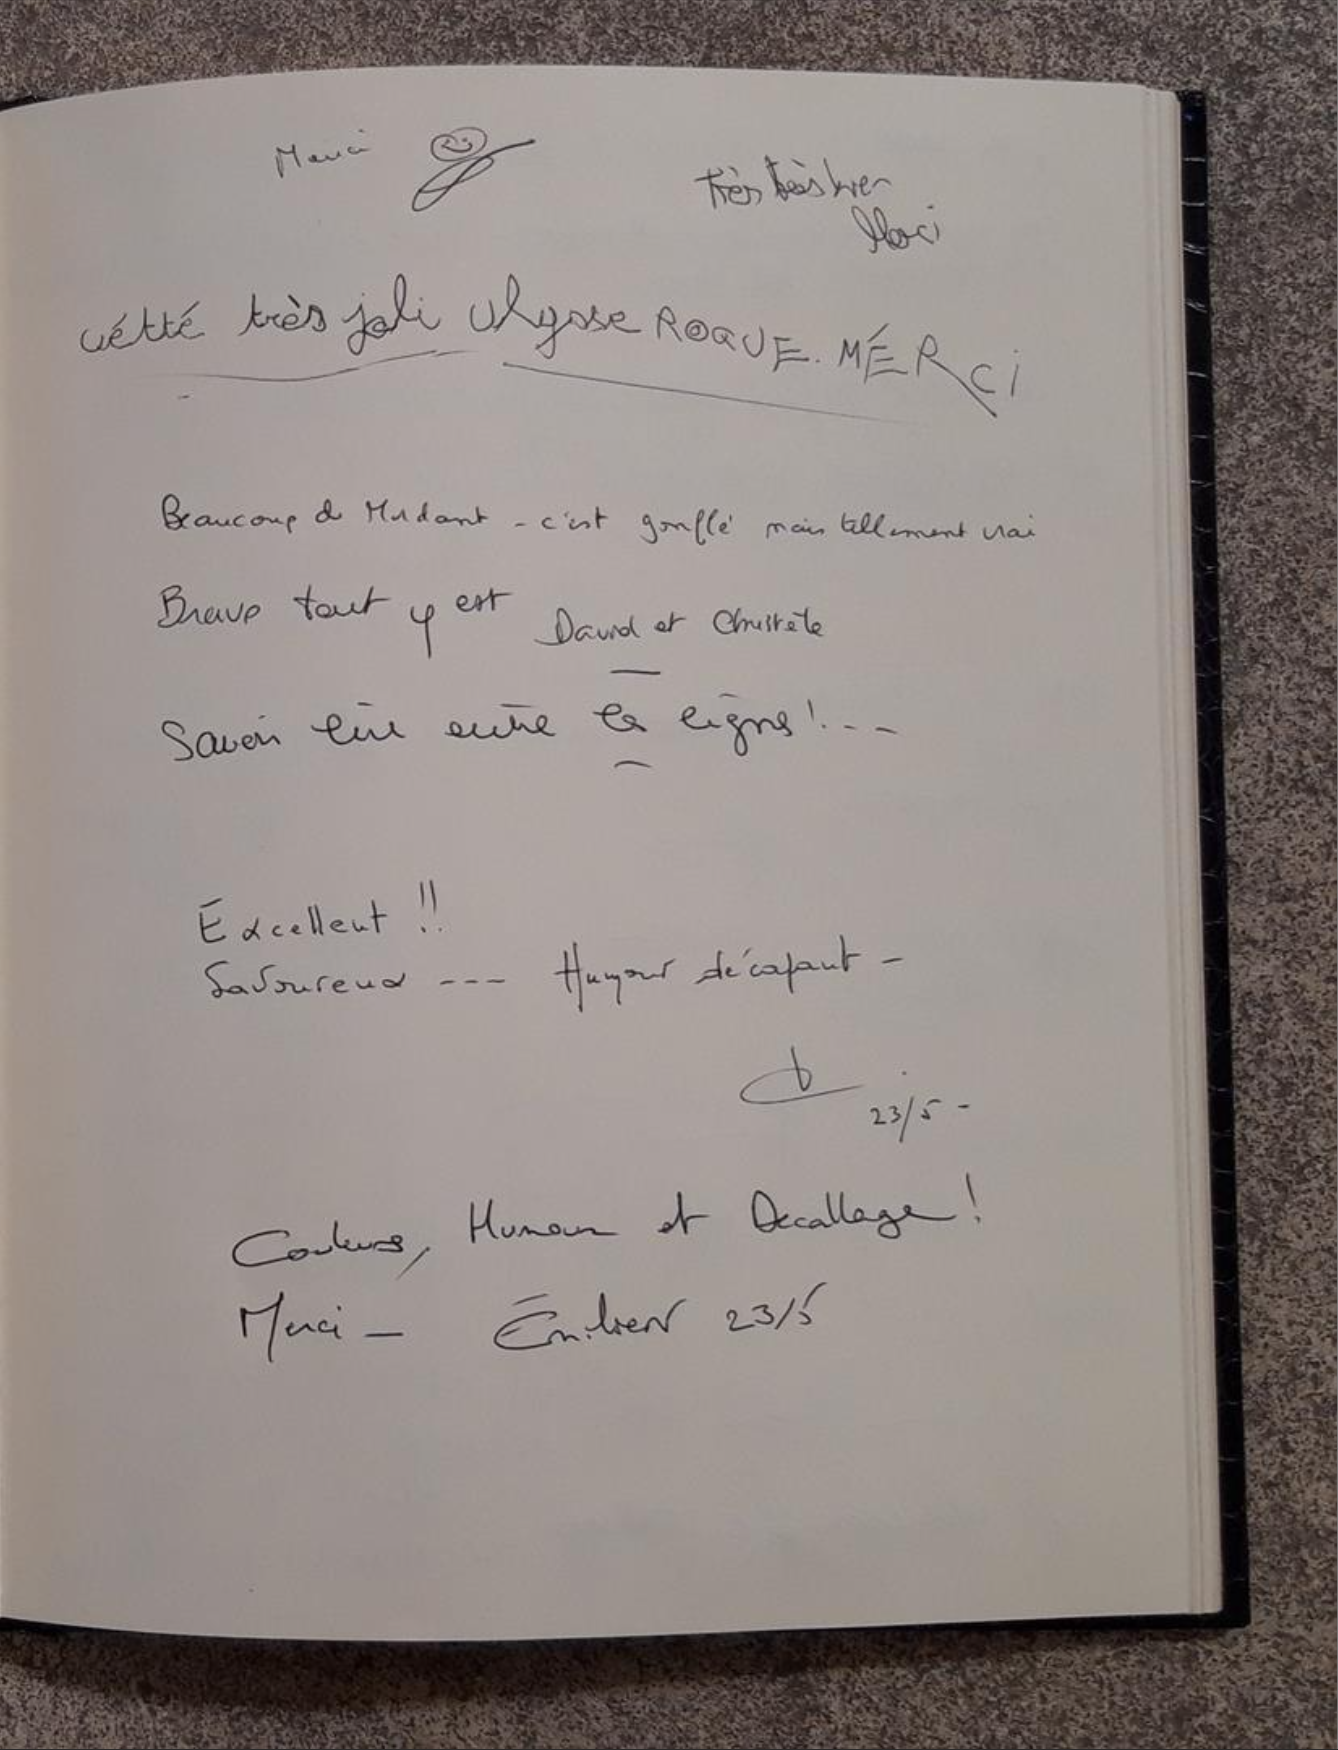 Merci
très très bien
Merci
cétté très joli Ulysse ROQUE. MÉRCi
Beaucoup de Mordant - c'est gonflé mais tellement vrai
Bravo tout y est David et Christèle
Savoir lire entre les lignes !...
Éxcellent !!
Savoureux --- Humour décapant -
23/5 -
Couleurs, Humour et Decallage !
Merci - Émilien 23/5